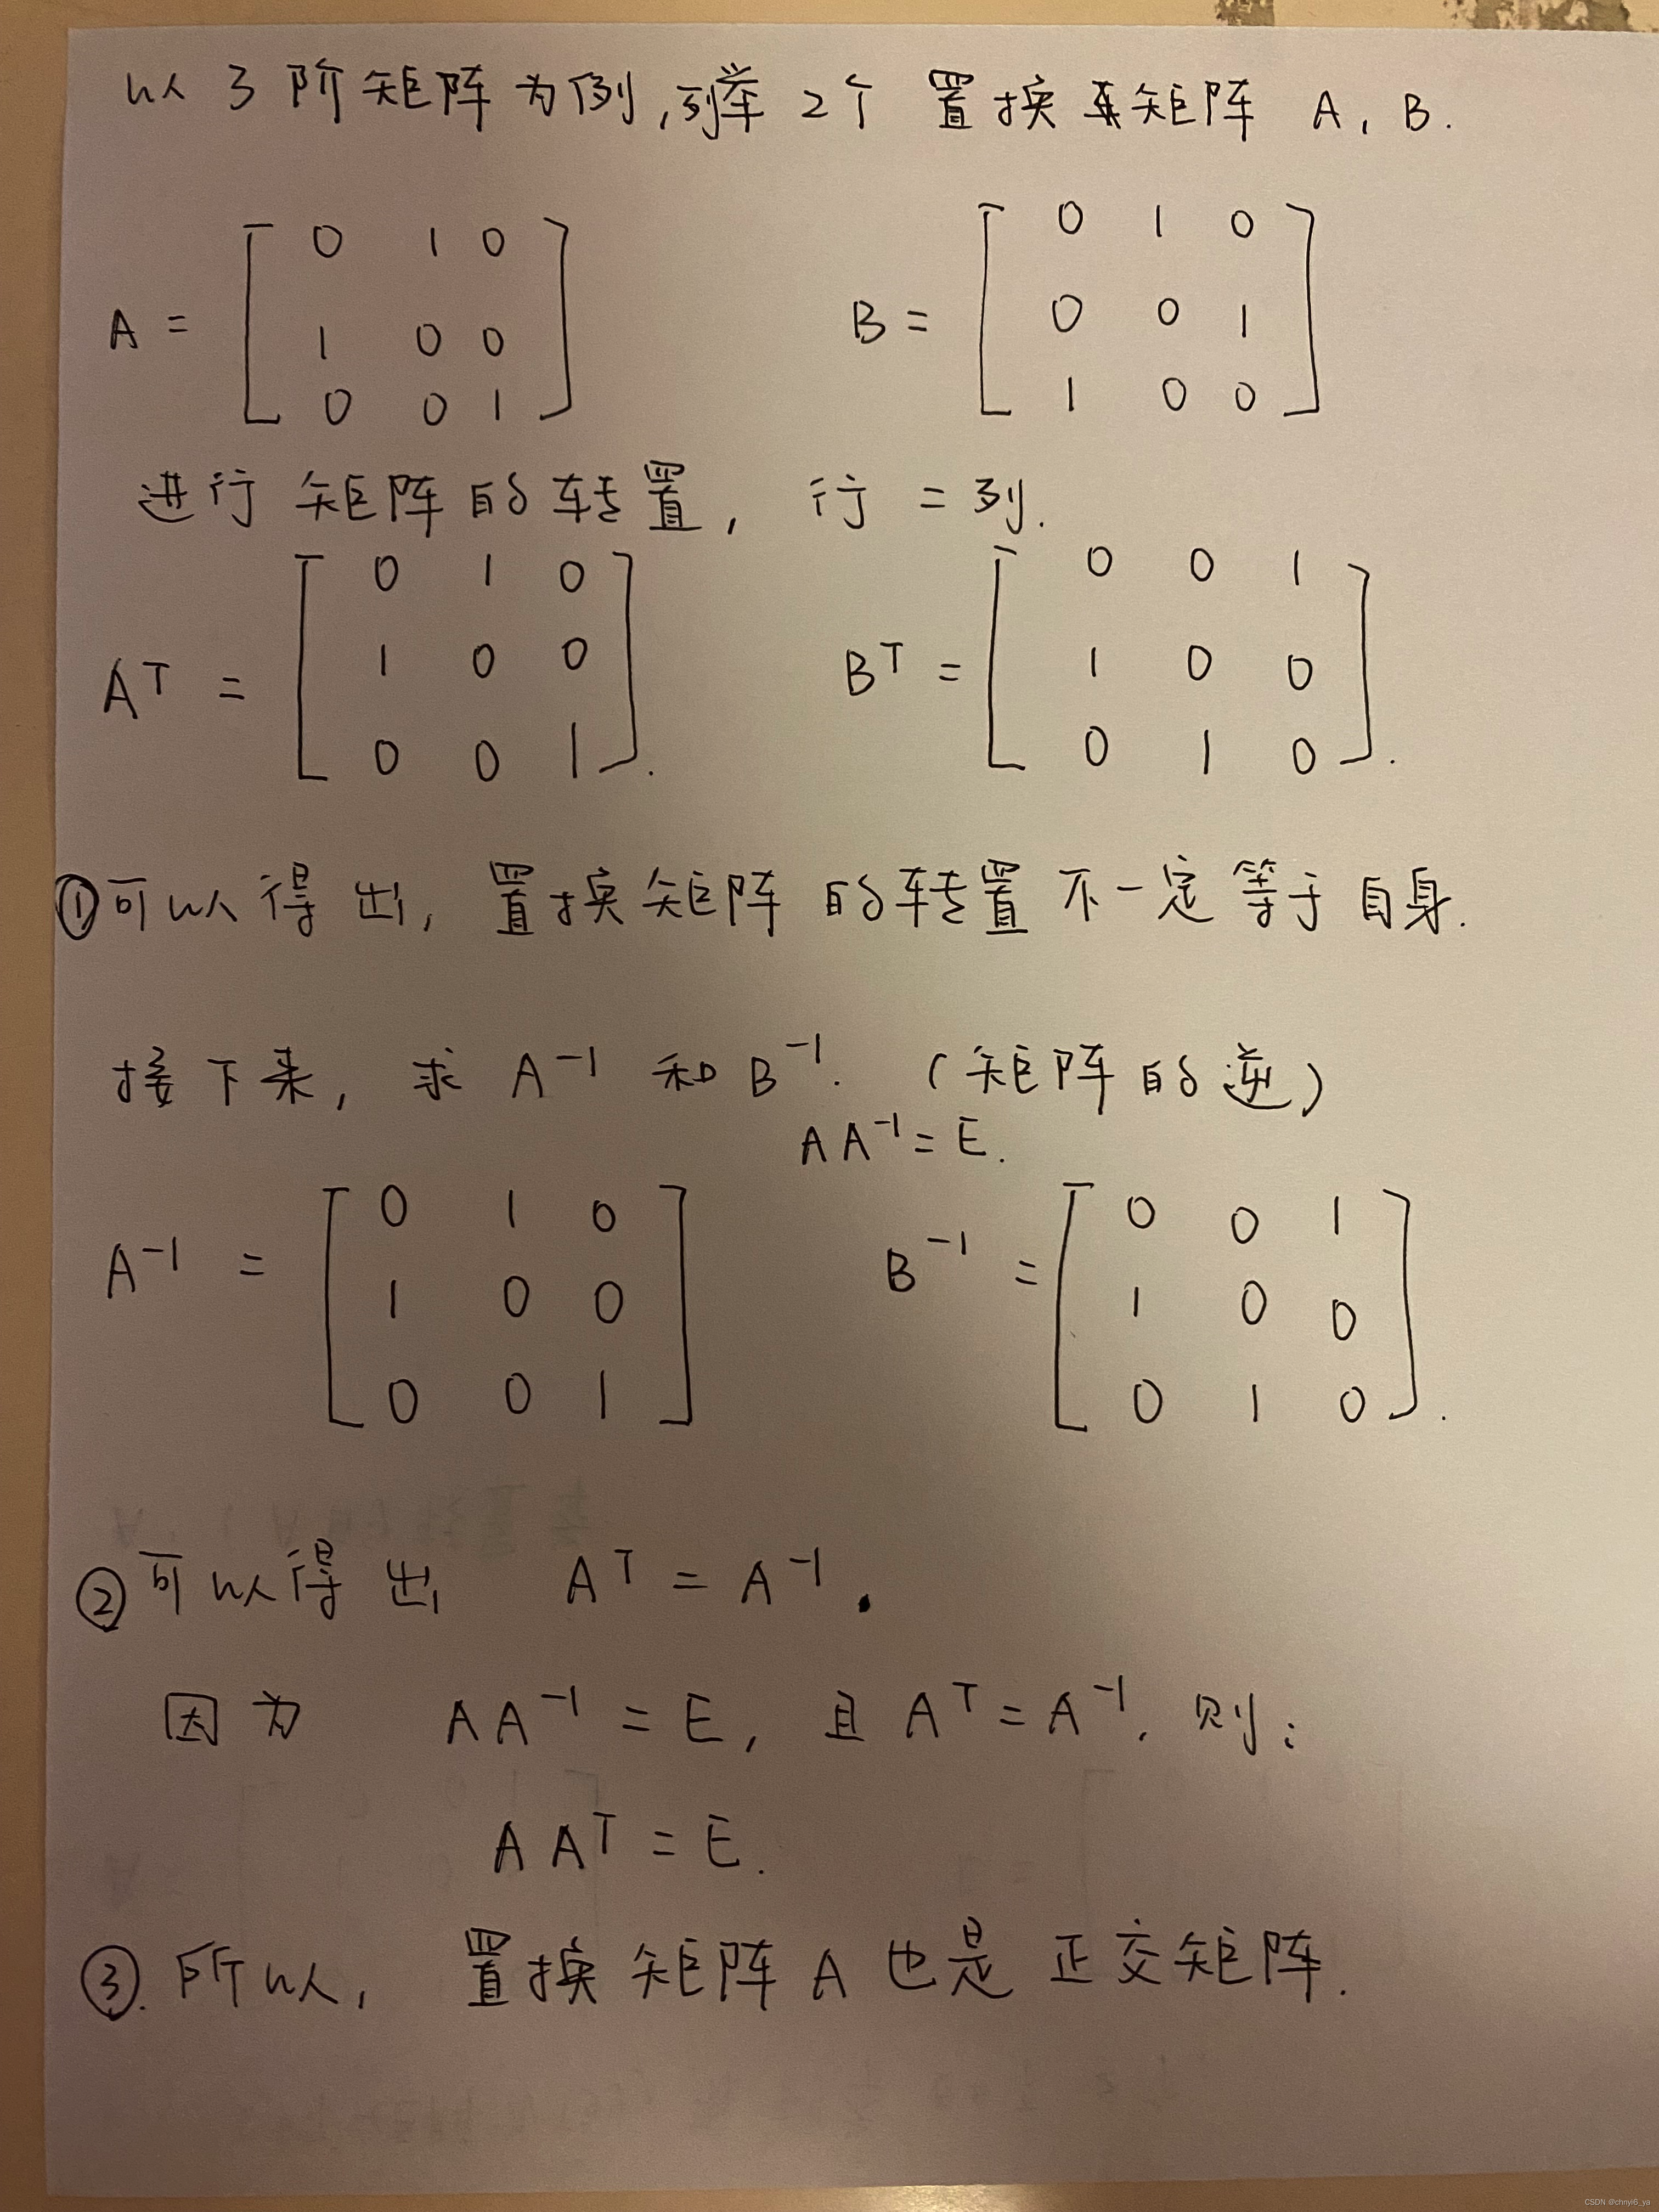 以3阶矩阵为例,列举2个置换矩阵 A, B.
A = [ 0 1 0
1 0 0
0 0 1 ]
B = [ 0 1 0
0 0 1
1 0 0 ]
进行矩阵的转置, 行 = 列.
A^T = [ 0 1 0
1 0 0
0 0 1 ].
B^T = [ 0 0 1
1 0 0
0 1 0 ].
①可以得出, 置换矩阵的转置不一定等于自身.
接下来, 求 A^-1 和 B^-1. (矩阵的逆)
AA^-1 = E.
A^-1 = [ 0 1 0
1 0 0
0 0 1 ]
B^-1 = [ 0 0 1
1 0 0
0 1 0 ].
②可以得出 A^T = A^-1.
因为 AA^-1 = E, 且 A^T = A^-1, 则:
AA^T = E.
③. 所以, 置换矩阵 A 也是正交矩阵.
CSDN @chnyi6_ya